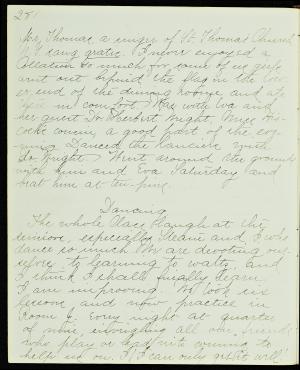 251
Mrs. Thomas, a singer of St. Thomas Church
N.Y. sang gratis. I never enjoyed a
so much for some of us girls
went out behind the flag in the low-
er end of the dining room, and ate
in comfort. Was with Eva and
her guest Dr. Herbert Wright, Miss
cousin, a good part of the eve-
ning. Danced the Lanciers with
Dr. Wright. Went around the grounds
with him and Eva Saturday and
beat him at ten-pins.
Dancing
The whole Class laugh at the
seniors, especially and I who
dance so much. We are devoting our-
selves to learning to waltz, and
I think I shall finally learn.
I am improving. We took six
lessons and now practice in
Room J. every night at quarter
of nine, all our friends
who play or lead, into coming to
help us on. If I can only get it well